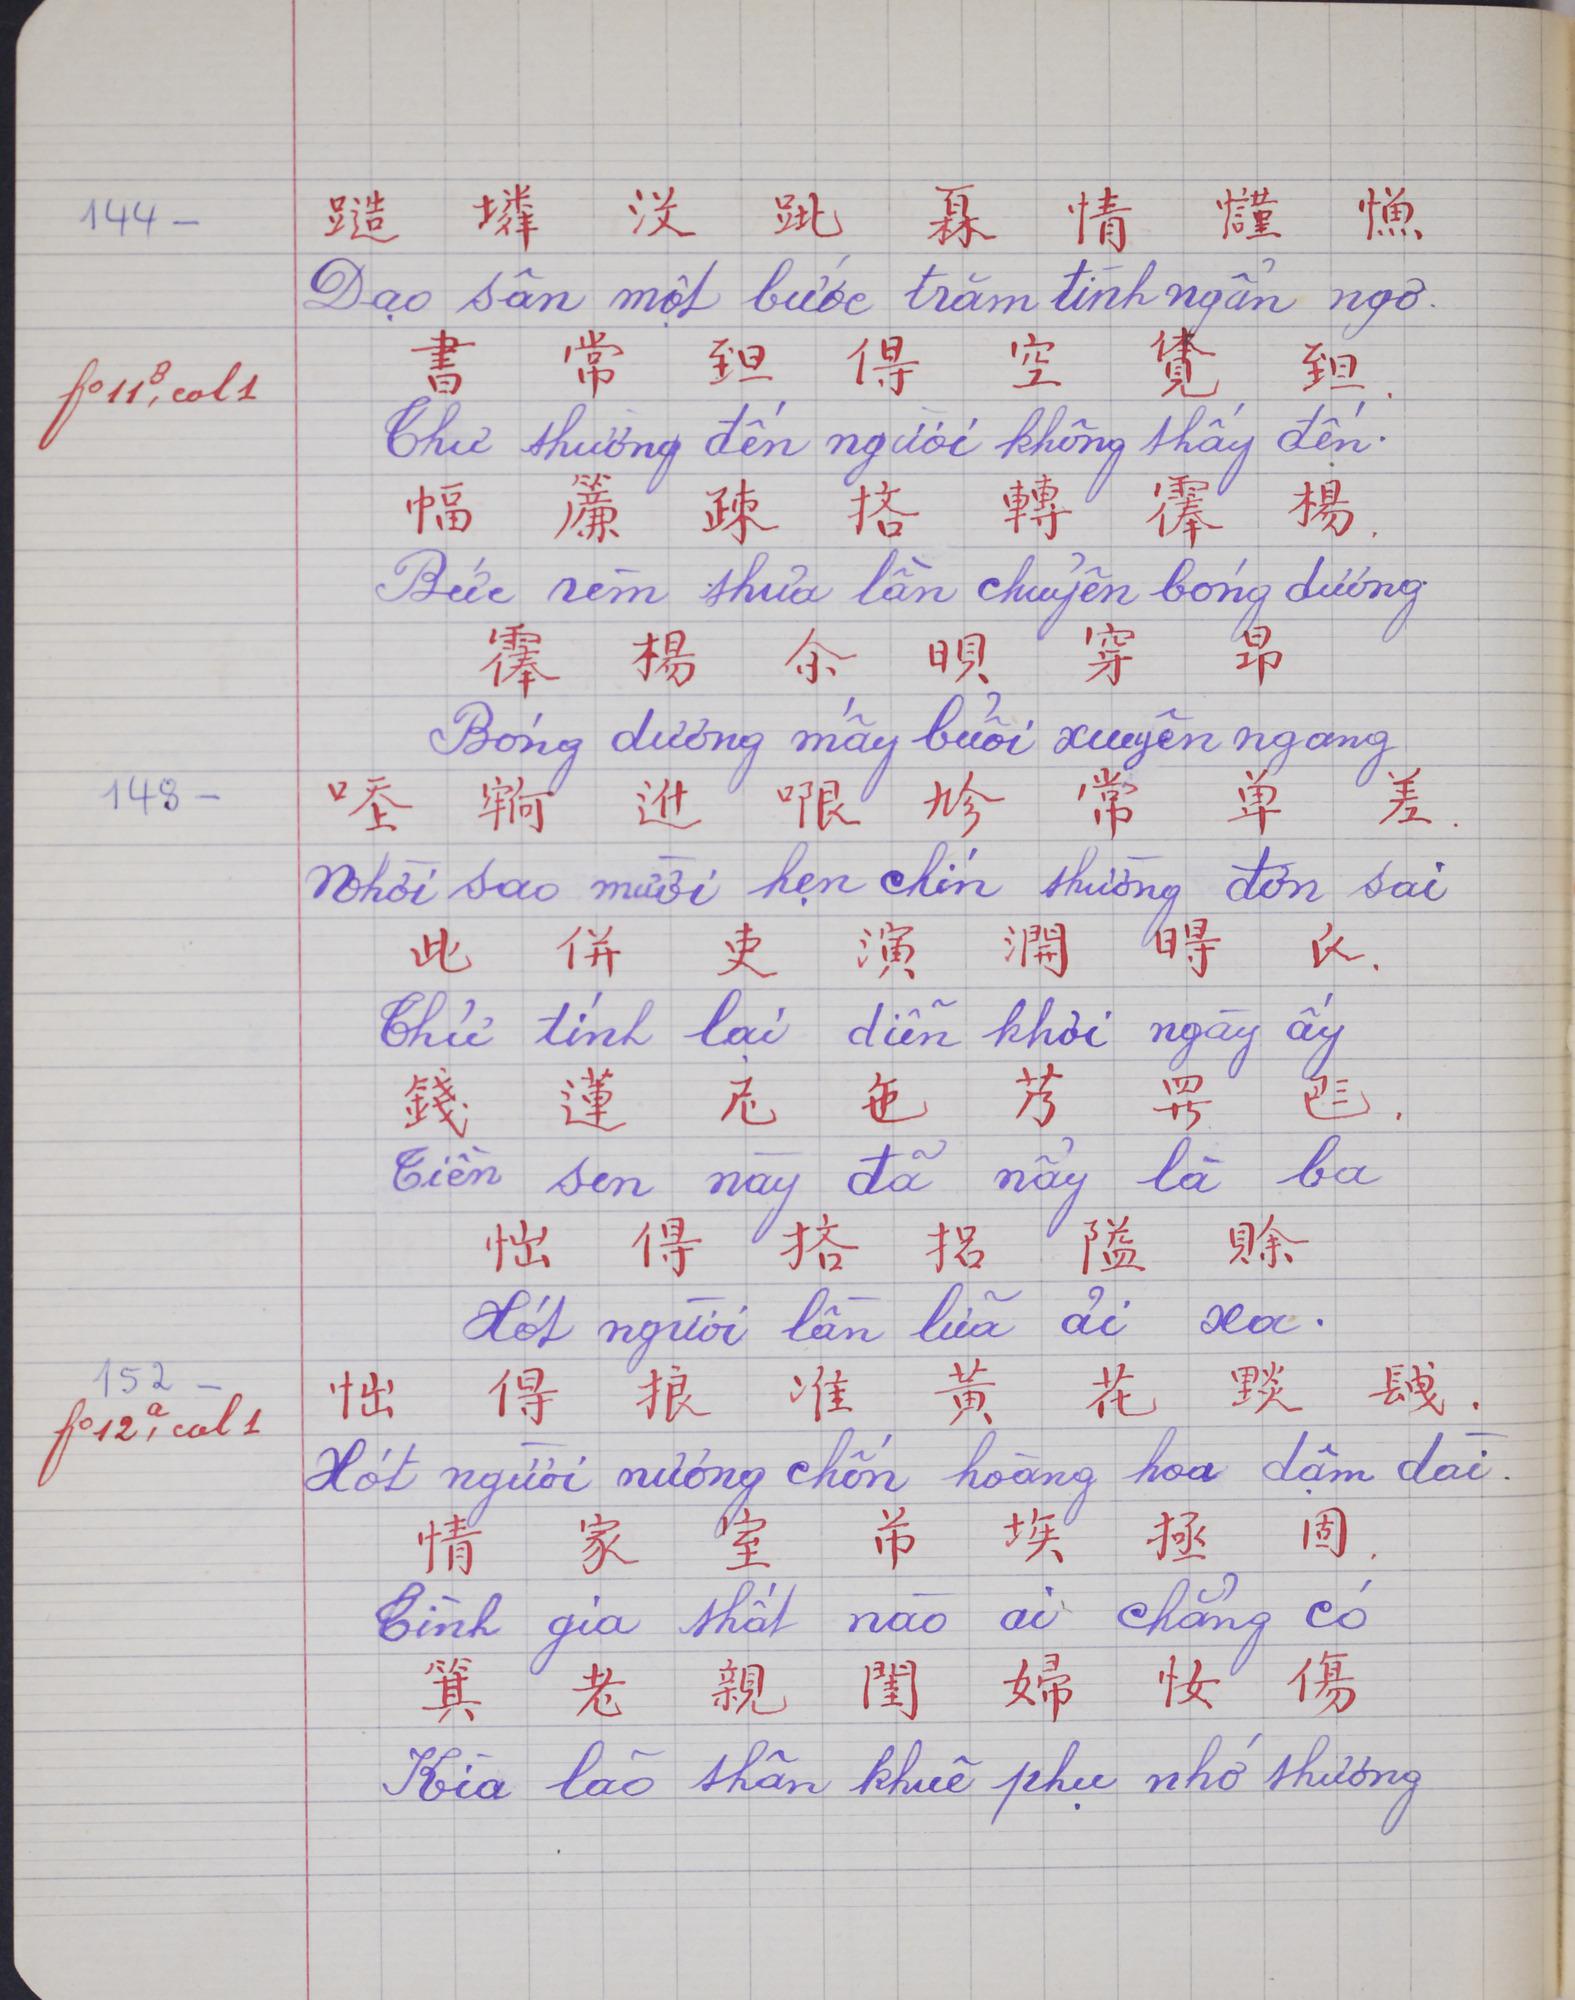 144 – 𨄹 𡑝 没 𨀈 𤾓 情 𢢯 㦆
Dạo sân một bước trăm tình ngẩn ngơ.
書 常 𦤾 得 空 𧡊 𦤾.
fº 11ᴮ, col 1 Thư thường đến người không thấy đến.
幅 簾 疎 撘 轉 𩃳 楊.
Bức rèm thưa lần chuyển bóng dương
𩃳 楊 余 𣇜 穿 昂
Bóng dương mấy buổi xuyên ngang
148 – 𠸗 𡫡 𨒒 㖼 𢒂 常 单 差.
Nhời sao mười hẹn chín thường đơn sai
此 併 吏 演 濶 𣈗 氏.
Thử tính lại diễn khơi ngày ấy
錢 蓮 尼 㐌 芿 𦊛 𠀧.
Tiền sen này đã nẩy là ba
㤕 得 撘 招 隘 賒
Xót người lần lữa ải xa.
152 – 㤕 得 挭 准 黃 花 𨤮 𨱽.
fº 12ᵃ, col 1 Xót người nương chốn hoàng hoa dậm dài.
情 家 室 吊 埃 拯 固.
Tình gia thất nào ai chẳng có
箕 老 親 閨 婦 𢖵 傷
Kìa lão thân khuê phụ nhớ thương